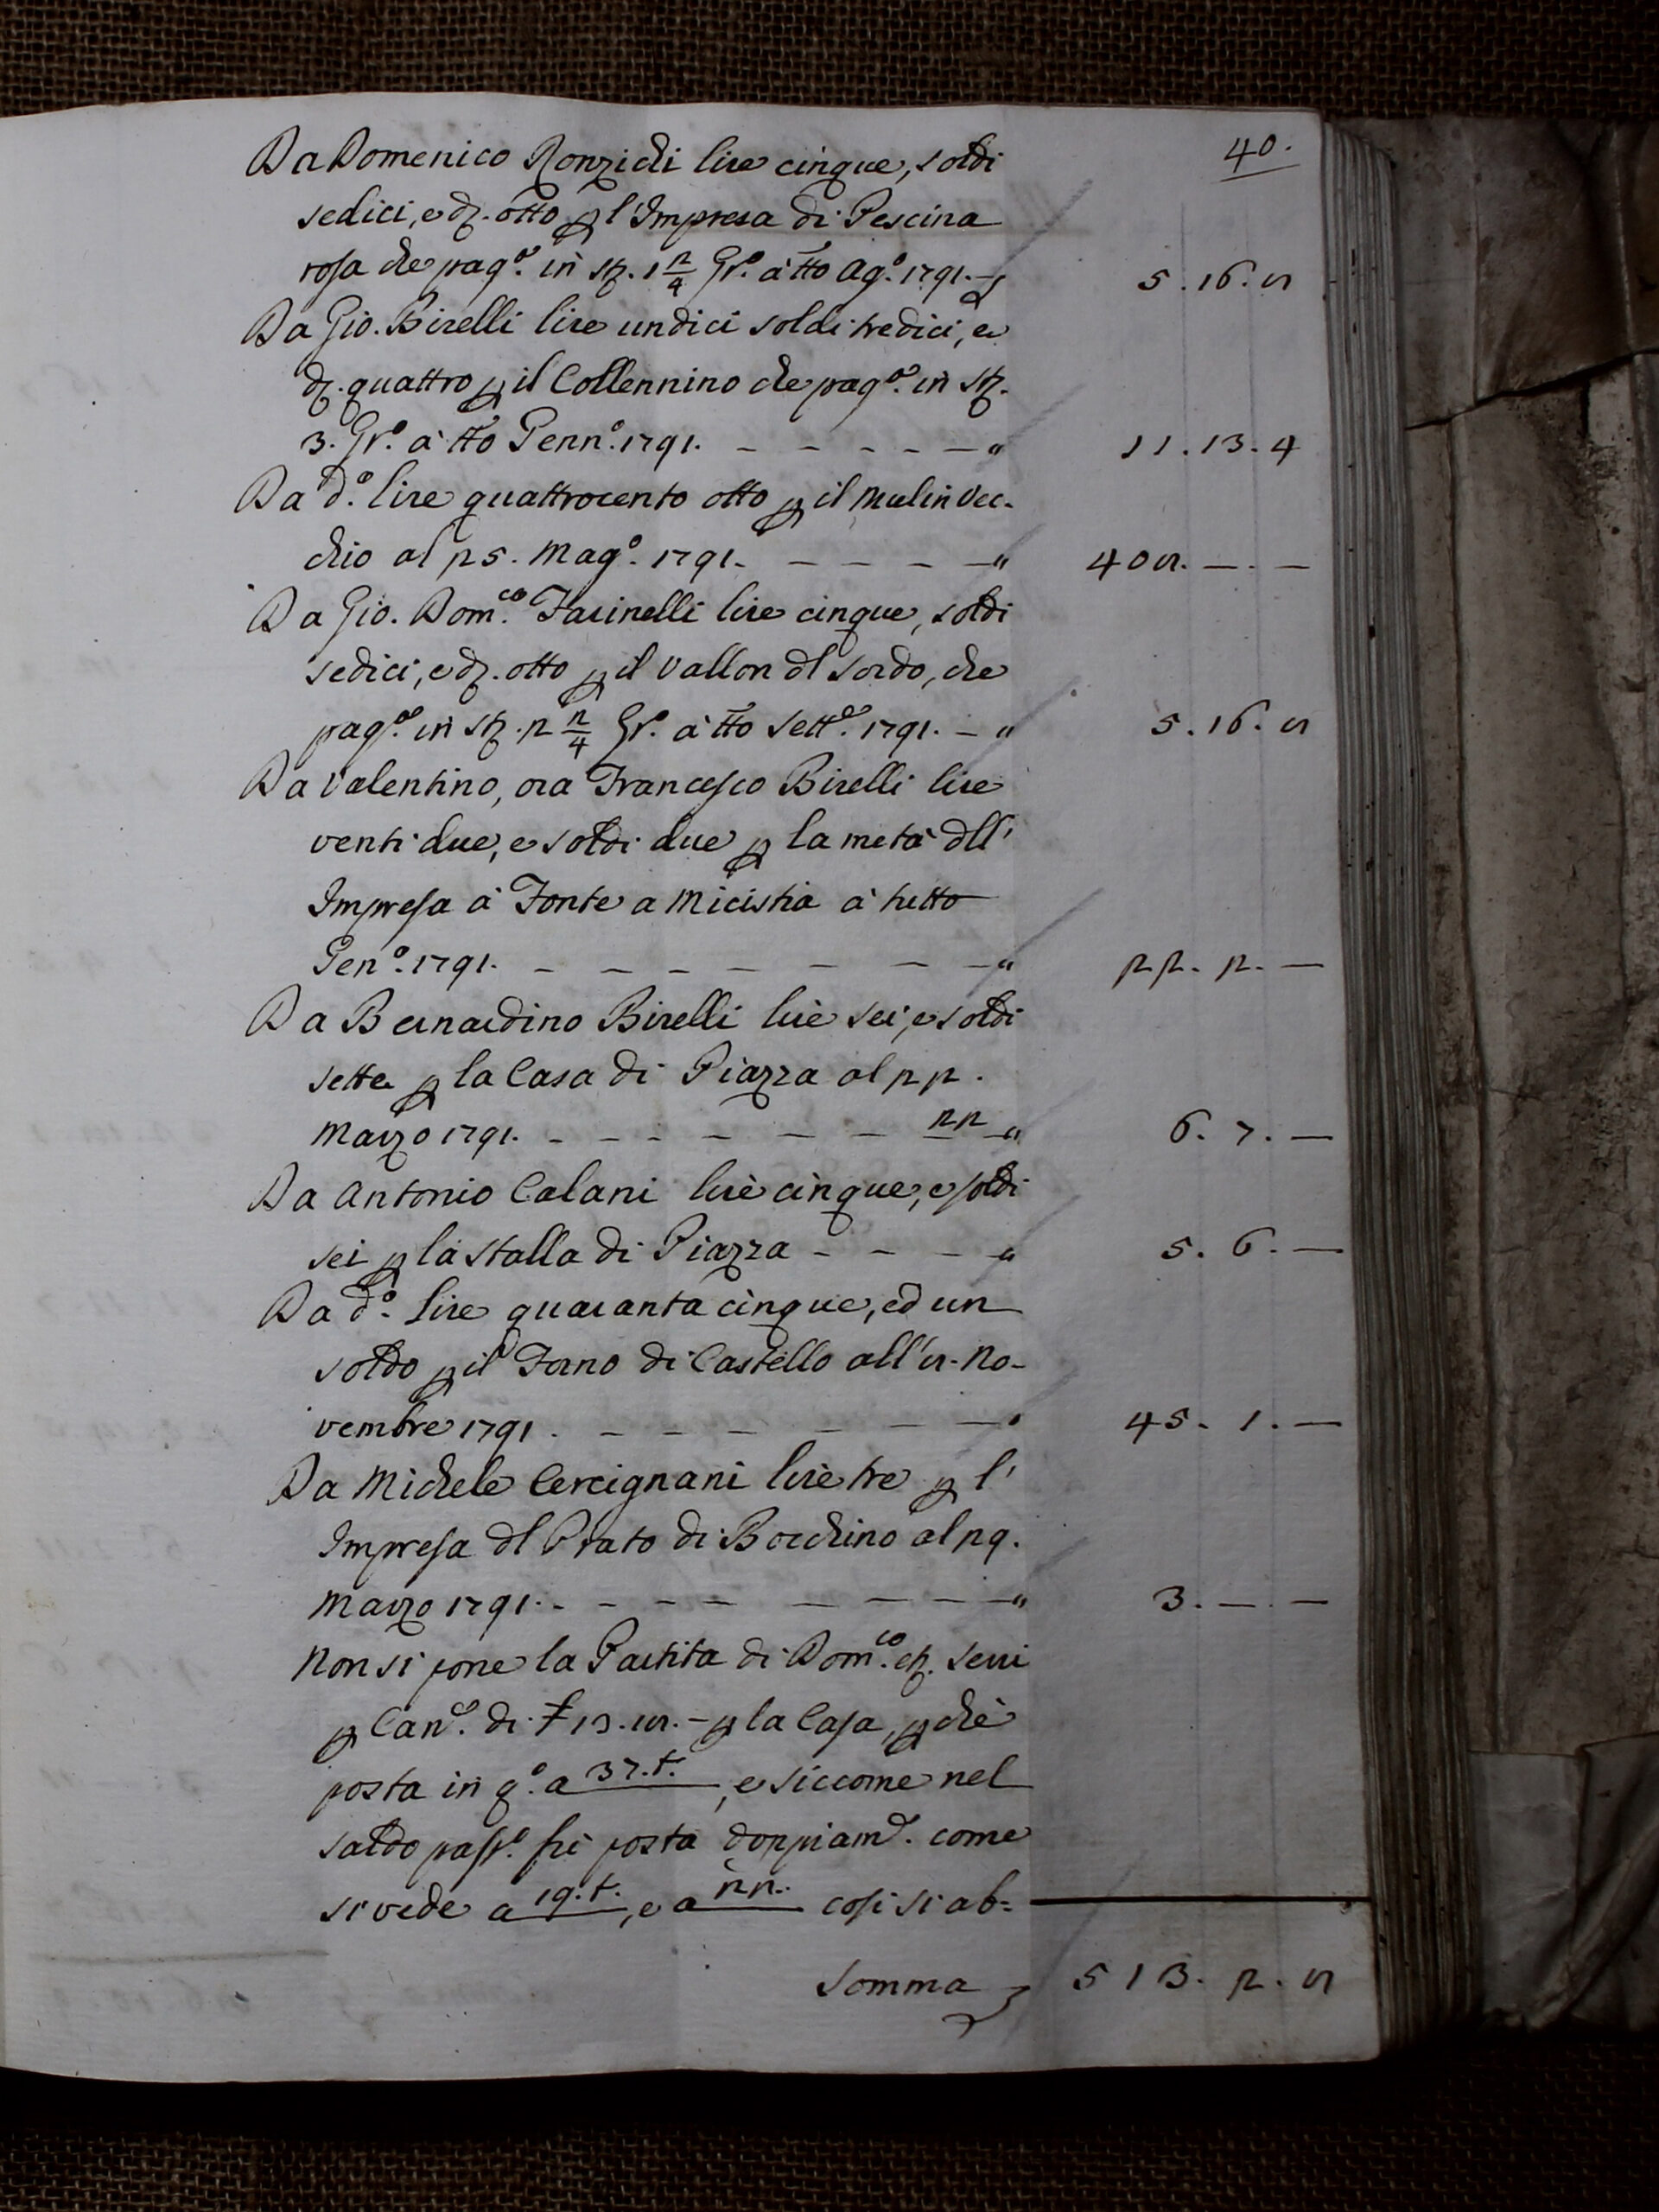 40.
Da Domenico Ronzichi lire cinque, soldi
sedici, e dj. otto p l'Impresa di Pescina
rosa che pag.º in stj. 1 2/4 Gr.º à tto Ag.º 1791. — 5.16.8
Da Gio. Birelli lire undici soldi tredici, e
dj. quattro p il Collennino che pag.º in stj.
3. Gr.º à tto Genn.º 1791. — — — — — " 11.13.4
Da d.º lire quattrocento otto p il Mulin Vec-
chio al 25. Mag.º 1791. — — — — " 408. —. —
Da Gio. Dom.co Farinelli lire cinque, soldi
sedici, e dj. otto p il Vallon dl Sordo, che
pag.º in stj. 2 2/4 Gr.º à tto Sett.e 1791. — " 5.16.8
Da Valentino, ora Francesco Birelli lire
venti due, e soldi due p la metà dll'
Impresa à Fonte a Micistia à tutto
Gen.º 1791. — — — — — — — " 22. 2. —
Da Bernardino Birelli lire sei, e soldi
sette p la Casa di Piazza al 22.
Marzo 1791. — — — — — — 22 " 6. 7. —
Da Antonio Calani lire cinque, e soldi
sei p la Stalla di Piazza — — — " 5. 6. —
Da d.º lire quaranta cinque, ed un
soldo p il Forno di Castello all'8. No-
vembre 1791. — — — — — — — " 45. 1. —
Da Michele Cercignani lire tre p l'
Impresa dl Prato di Bocchino al 29.
Marzo 1791. — — — — — — — — " 3. —. —
Non si pone la Partita di Dom.co etj. Serri
p Can.e di £ 13. 18. — p la Casa, p chè
posta in q.º a 37.t. , e siccome nel
saldo pass.º fù posta doppiam.e come
si vede a 19.t., e a 22. così si ab=
Somma 513. 2. 8